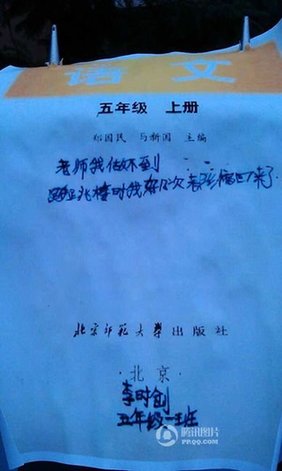 语文
五年级 上册
郑国民 马新国 主编
老师我做不到
跳楼时我好几次都缩回来了
北京师范大学出版社
·北京·
李时创
五年级一班
腾讯图片
PP.QQ.COM